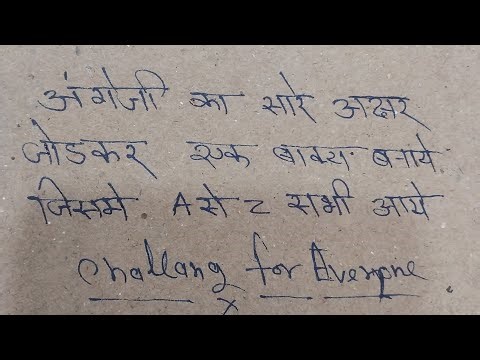 अंग्रेजी का सारे अक्षर
जोडकर एक वाक्य बनाये
जिसमे A से Z सभी आये
Challang for Averyone
x